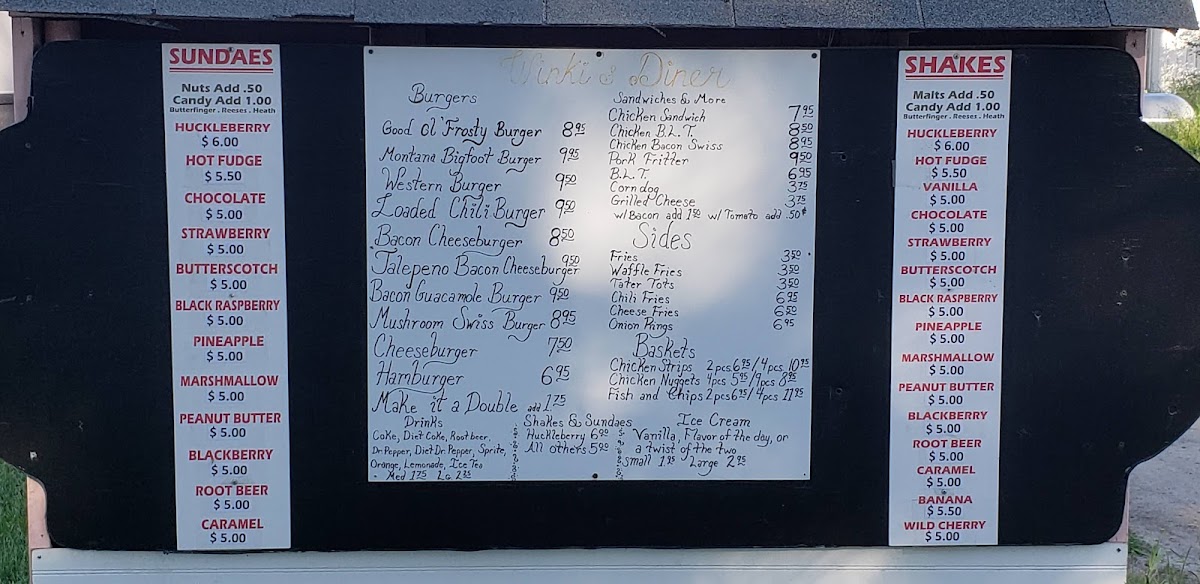 SUNDAES
Nuts Add .50
Candy Add 1.00
Butterfinger . Reeses . Heath
HUCKLEBERRY
$ 6.00
HOT FUDGE
$ 5.50
CHOCOLATE
$ 5.00
STRAWBERRY
$ 5.00
BUTTERSCOTCH
$ 5.00
BLACK RASPBERRY
$ 5.00
PINEAPPLE
$ 5.00
MARSHMALLOW
$ 5.00
PEANUT BUTTER
$ 5.00
BLACKBERRY
$ 5.00
ROOT BEER
$ 5.00
CARAMEL
$ 5.00
Winki's Diner
Burgers
Good Ol' Frosty Burger 8.95
Montana Bigfoot Burger 9.95
Western Burger 9.50
Loaded Chili Burger 9.50
Bacon Cheeseburger 8.50
Jalepeno Bacon Cheeseburger 9.50
Bacon Guacamole Burger 9.50
Mushroom Swiss Burger 8.95
Cheeseburger 7.50
Hamburger 6.95
Make it a Double add 1.75
Sandwiches & More
Chicken Sandwich 7.95
Chicken B.L.T. 8.50
Chicken Bacon Swiss 8.95
Pork Fritter 9.50
B.L.T. 6.95
Corndog 3.75
Grilled Cheese 3.75
w/Bacon add 1.50 w/ Tomato add .50¢
Sides
Fries 3.50
Waffle Fries 3.50
Tater Tots 3.50
Chili Fries 6.95
Cheese Fries 6.50
Onion Rings 6.95
Baskets
Chicken Strips 2pcs 6.95/4pcs 10.95
Chicken Nuggets 4pcs 5.95/9pcs 8.95
Fish and Chips 2pcs 6.95/4pcs 11.95
Drinks
Coke, Diet Coke, Root beer,
Dr. Pepper, Diet Dr. Pepper, Sprite,
Orange, Lemonade, Ice Tea
Med 1.75 LG. 2.25
Shakes & Sundaes
Huckleberry 6.00
All others 5.00
Ice Cream
Vanilla, Flavor of the day, or
a twist of the two
Small 1.95 Large 2.95
SHAKES
Malts Add .50
Candy Add 1.00
Butterfinger . Reeses . Heath
HUCKLEBERRY
$ 6.00
HOT FUDGE
$ 5.50
VANILLA
$ 5.00
CHOCOLATE
$ 5.00
STRAWBERRY
$ 5.00
BUTTERSCOTCH
$ 5.00
BLACK RASPBERRY
$ 5.00
PINEAPPLE
$ 5.00
MARSHMALLOW
$ 5.00
PEANUT BUTTER
$ 5.00
BLACKBERRY
$ 5.00
ROOT BEER
$ 5.00
CARAMEL
$ 5.00
BANANA
$ 5.50
WILD CHERRY
$ 5.00